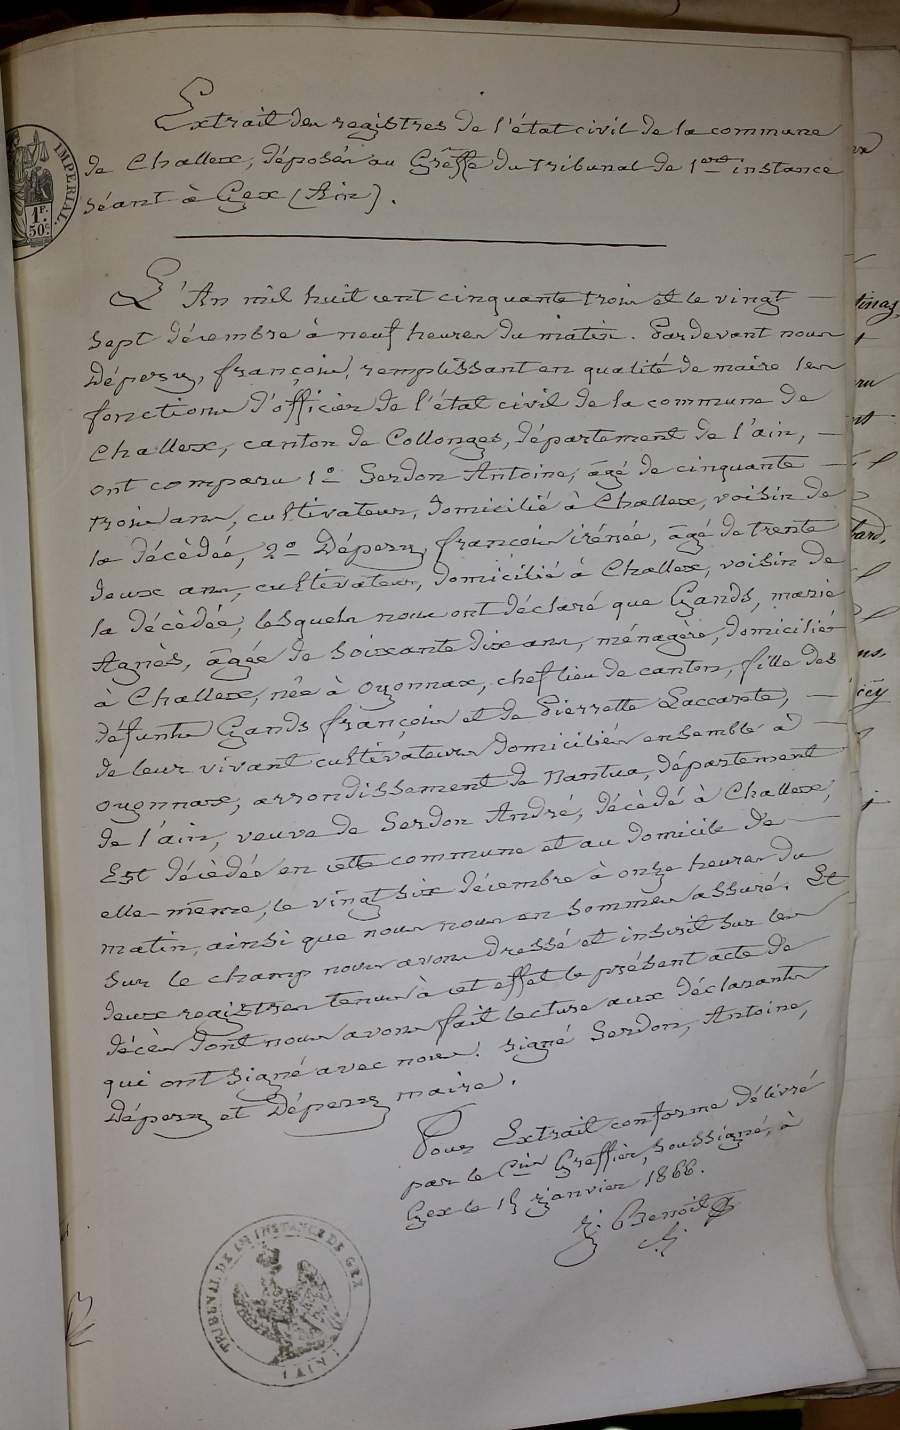 Extrait des registres de l'état civil de la commune
de Challex, déposés au Greffe du tribunal de 1ere instance
séant à Gex (Ain).
IMPERIAL.
1F.
50c
L'An mil huit cent cinquante trois et le vingt
sept décembre à neuf heures du matin. Pardevant nous
Dépery, françois, remplissant en qualité de maire les
fonctions d'officier de l'état civil de la commune de
Challex, canton de Collonges, département de l'ain,
ont comparu 1o Serdon Antoine, âgé de cinquante
trois ans, cultivateur, domicilié à Challex, voisin de
la décèdée, 2o Dépery, françois irénée, âgé de trente
deux ans, cultivateur, domicilié à Challex, voisin de
la décèdée, lesquels nous ont déclaré que Gands, marie
Agnès, âgée de soixante dix ans, ménagère, domiciliée
à Challex, née à oyonnax, chef lieu de canton, fille des
défunts Gands françois et de Pierrette Laccarote,
de leur vivant cultivateurs domiciliés ensemble à
oyonnax, arrondissement de nantua, département
de l'ain, veuve de Serdon André, décèdé à Challex,
Est décèdée en cette commune et au domicile de
elle-même, le vingt six décembre à onze heures du
matin, ainsi que nous nous en sommes assuré. Et
sur le champ nous avons dressé et inscrit sur les
deux registres tenus à cet effet le présent acte de
décès dont nous avons fait lecture aux déclarants
qui ont signé avec nous. signé Serdon, Antoine,
Dépery et Dépery maire.
Pour Extrait conforme délivré
par le Cmis Greffier, soussigné, à
Gex le 15 janvier 1866.
j. Benoit
TRIBUNAL DE 1ERE INSTANCE DE GEX
(AIN)